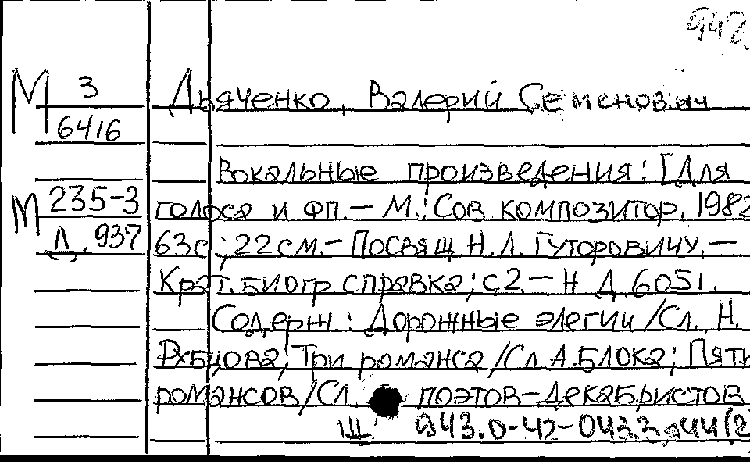 942
М 3 Дьяченко, Валерий Семенович
6416
Вокальные произведения: [Для
М 235-3 голоса и фп. — М.: Сов. композитор, 1982
Д. 937 63с.; 22 см. — Посвящ. Н.Л. Гуторовичу. —
Крат. биогр. справка; с 2 — Н. Д. 6051.
Содерж.: Дорожные элегии / Сл. Н.
Рубцова; Три романса / Сл. А. Блока; Пять
романсов / Сл. поэтов-декабристов
Щ